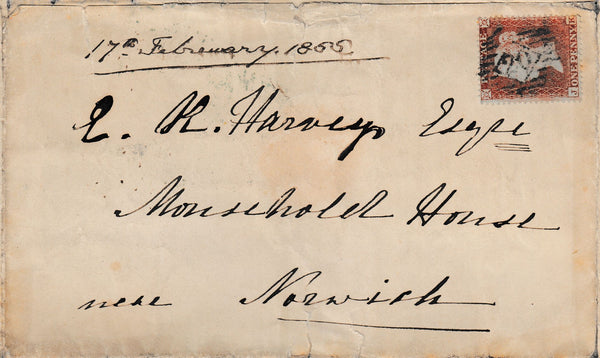 17th Februrary 1855
E. K. Harvey Esqre
Mousehold House
near Norwich
POSTAGE
ONE PENNY